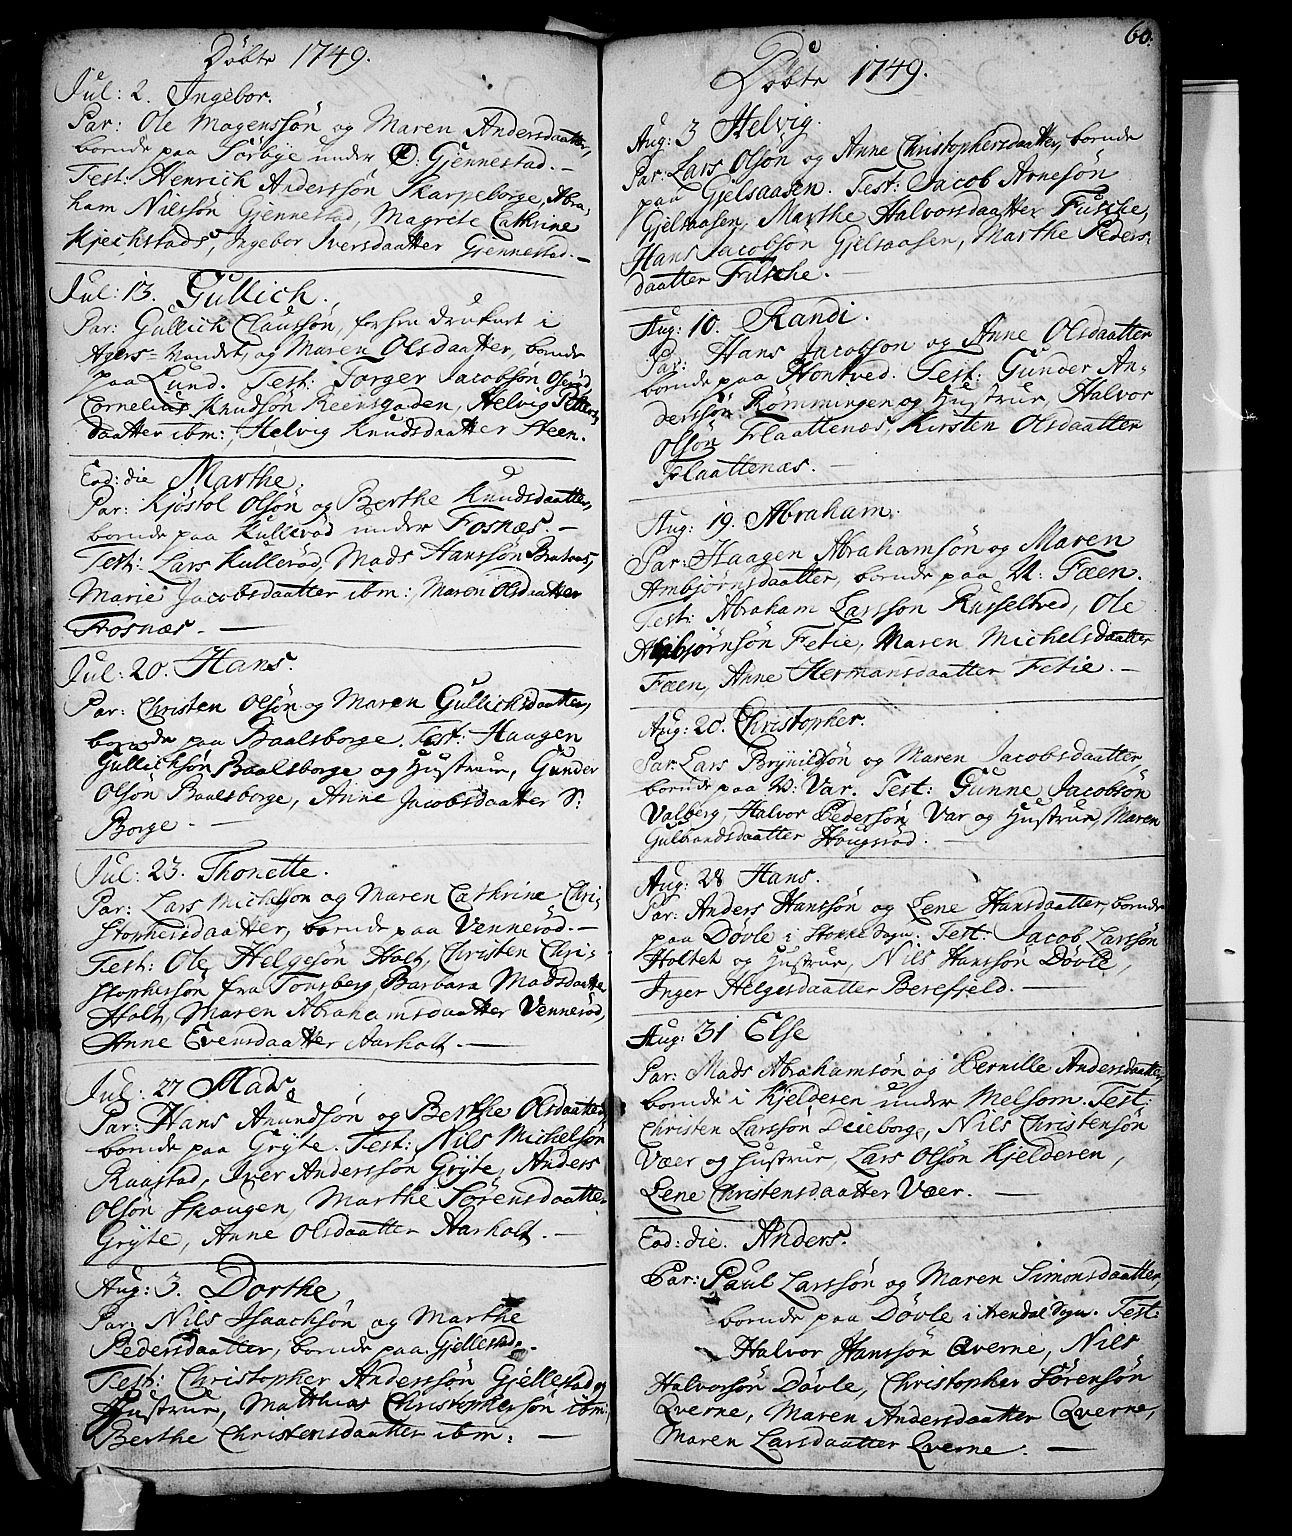 Døbte 1749.
Jul: 2. Ingebor.
Par: Ole Mogenssøn og Maren Andersdaatter,
boende paa Torbye under O: Gjennestad. —
Test: Henrich Anderssøn Skarpeborge, Abra-
ham Nilssøn Gjennestad, Magrete Cathrine
Kjechstads, Ingebor Iversdaatter Gjennestad. —
Jul: 13. Gullich.
Par: Gullich Claussøn, forhen druknet i
Agers-Vandet, og Maren Olsdaatter, boende
paa Lund. Test: Torger Jacobsøn Oserød,
Cornelius Knudsøn Reensgaden, Helvig Petters-
daatter ibm:, Helvig Knudsdaatter Steen.
Eod: die Marthe.
Par: Kjøstol Olsøn og Berthe Knudsdaatter,
boende paa Kullerød under Fosnæs. —
Test: Lars Kullerød, Mads Hanssøn
Marie Jacobsdaatter ibm:, Maren Olsdaatter
Fosnæs. —
Jul: 20. Hans.
Par: Christen Olsøn og Maren Gullichsdaatter,
boende paa Baalsborge. Test: Haagen
Gullichsøn Baalsborge og Hustrue, Gunder
Olsøn Baalsborge, Anne Jacobsdaatter S:
Borge —
Jul: 23. Thonette.
Par: Lars Michelsøn og Maren Cathrine Chri-
stophersdaatter, boende paa Vennerød. —
Test: Ole Helgesøn Holt, Christen Chri-
stophersøn fra Tonsberg, Barbara Madsdaatter
Holt, Maren Abrahamsdaatter Vennerød,
Anne Evensdaatter Aarholt. —
Jul: 27 Mads
Par: Hans Anundsøn og Berthe Olsdaatter,
boende paa Gryte. Test: Nils Michelsøn
Raastad, Iver Anderssøn Gryte, Anders
Olsøn Skougen, Marthe Sørensdaatter
Gryte, Anne Olsdaatter Aarholt. —
Aug: 3. Dorthe
Par: Nils Isaachsøn og Marthe
Pedersdaatter, boende paa Gjellestad.
Test: Christopher Anderssøn Gjellestad og
Hustrue, Matthias Christophersøn ibm:
Berthe Christensdaatter ibm: —
60.
Døbte 1749.
Aug: 3 Helvig.
Par: Lars Olsøn og Anne Christophersdaatter, boende
paa Gjelsaasen. Test: Jacob Arnesøn
Gjelsaasen, Marthe Halvorsdaatter Fuske,
Hans Jacobsøn Gjelsaasen, Marthe Peders-
daatter Fuske. —
Aug: 10. Randi.
Par: Hans Jacobsøn og Anne Olsdaatter
boende paa Hontved. Test: Gunder An-
derssøn Rømmingen og Hustrue, Halvor
Olsøn Flaattenæs, Kirsten Olsdaatter
Flaattenæs. —
Aug: 19. Abraham.
Par: Haagen Abrahamsøn og Maren
Ambjørnsdaatter, boende paa N: Fæen.
Test: Abraham Larssøn Russeltved, Ole
Ambjørnsøn Fetie, Maren Michelsdaatter
Fæen, Anne Hermansdaatter Fetie. —
Aug: 20. Christopher.
Par: Lars Brynildsøn og Maren Jacobsdaatter,
boende paa N: Var. Test: Gunne Jacobsøn
Valberg, Halvor Pedersøn Var og Hustrue, Maren
Gulbrandsdaatter Hougsrød. —
Aug: 28 Hans.
Par: Anders Hanssøn og Lene Hansdaatter, boende
paa Døvle i Stokke Sogn. Test: Jacob Larssøn
Holtet og Hustrue, Nils Hanssøn Døvle,
Inger Helgesdaatter Berefjeld. —
Aug: 31 Else
Par: Mads Abrahamsøn og Pernille Andersdaatter,
boende i Kjelderen under Melsom. Test:
Christen Larssøn Dueborge, Nils Christensøn
Vær og Hustrue, Lars Olsøn Kjelderen,
Lene Christensdaatter Vær. —
Eod: die. Anders.
Par: Paul Larssøn og Maren Simonsdaatter,
boende paa Døvle i Arendal Sogn. Test:
Halvor Hanssøn Qverne, Nils
Halvorsøn Døvle, Christopher Sørensøn
Qverne, Maren Andersdaatter Qverne,
Maren Larsdaatter Qverne. —